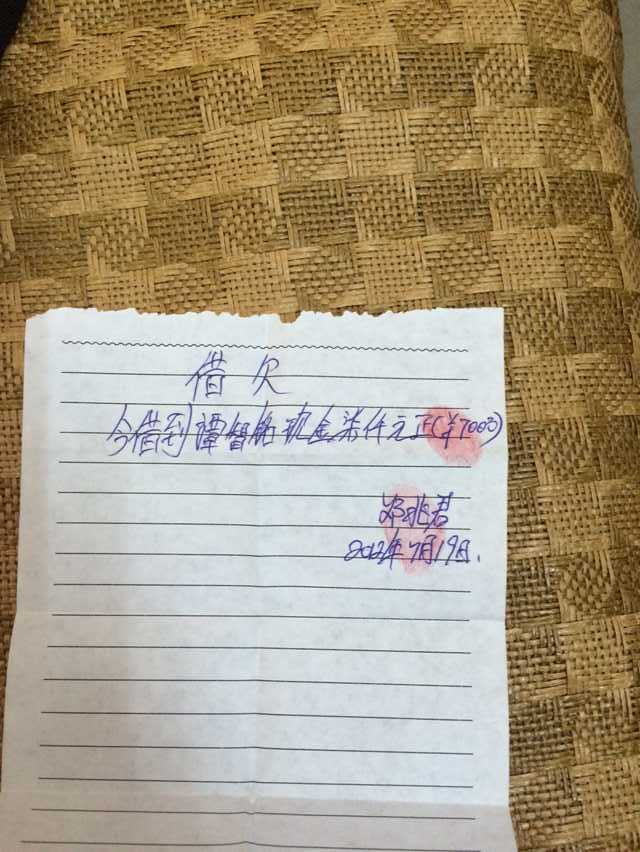 借欠
今借到谭智能现金柒仟元正(¥7000)
邓兆君
2012年7月19日.